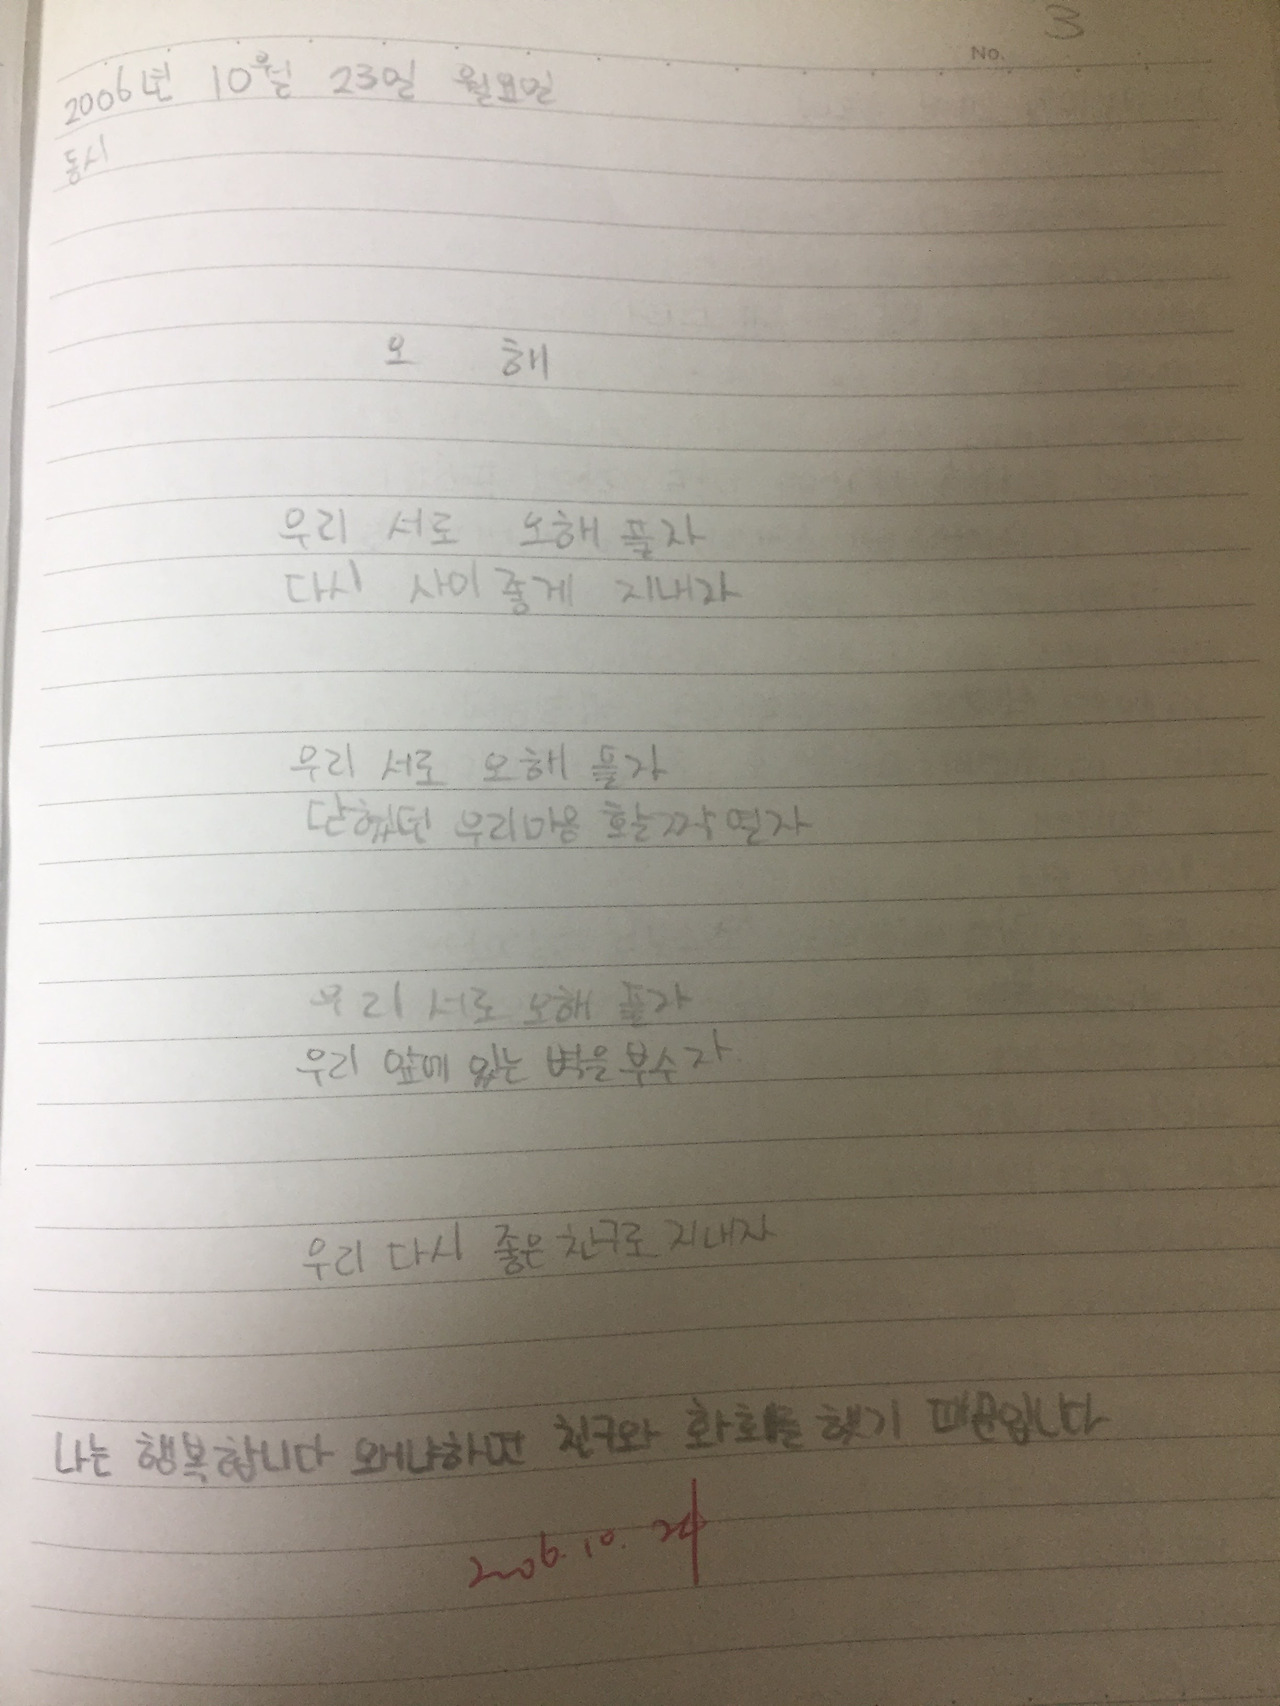 3
No.
2006년 10월 23일 월요일
동시
오 해
우리 서로 오해 풀자
다시 사이 좋게 지내자
우리 서로 오해 풀자
닫혔던 우리마음 활짝 열자
우리 서로 오해 풀자
우리 앞에 있는 벽을 부수자
우리 다시 좋은 친구로 지내자
나는 행복합니다 왜냐하면 친구와 화회를 했기 때문입니다
2006. 10. 24